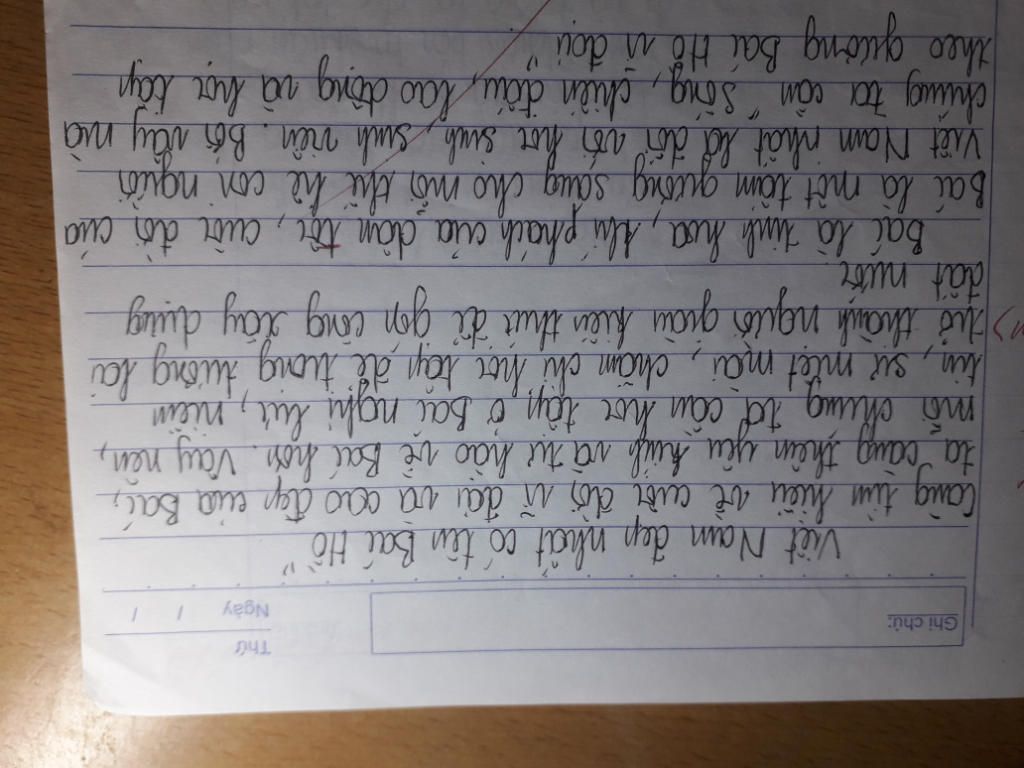 Thứ
Ngày / /
Ghi chú:
Việt Nam đẹp nhất có tên Bác Hồ"
Càng tìm hiểu về cuộc đời vĩ đại và cao đẹp của Bác,
ta càng thêm yêu kính và tự hào về Bác hơn. Vậy nên,
mỗi chúng ta cần học tập ở Bác nghị lực, niềm
tin, sự miệt mài, chăm chỉ học tập để tương lai
trở thành người giàu kiến thức để góp công xây dựng
đất nước.
Bác là tinh hoa, khí phách của dân tộc, cuộc đời của
Bác là một tấm gương sáng cho mỗi thế hệ con người
Việt Nam nhất là đối với học sinh, sinh viên. Bởi vậy mà
chúng ta cần "sống, chiến đấu, lao động và học tập
theo gương Bác Hồ vĩ đại"